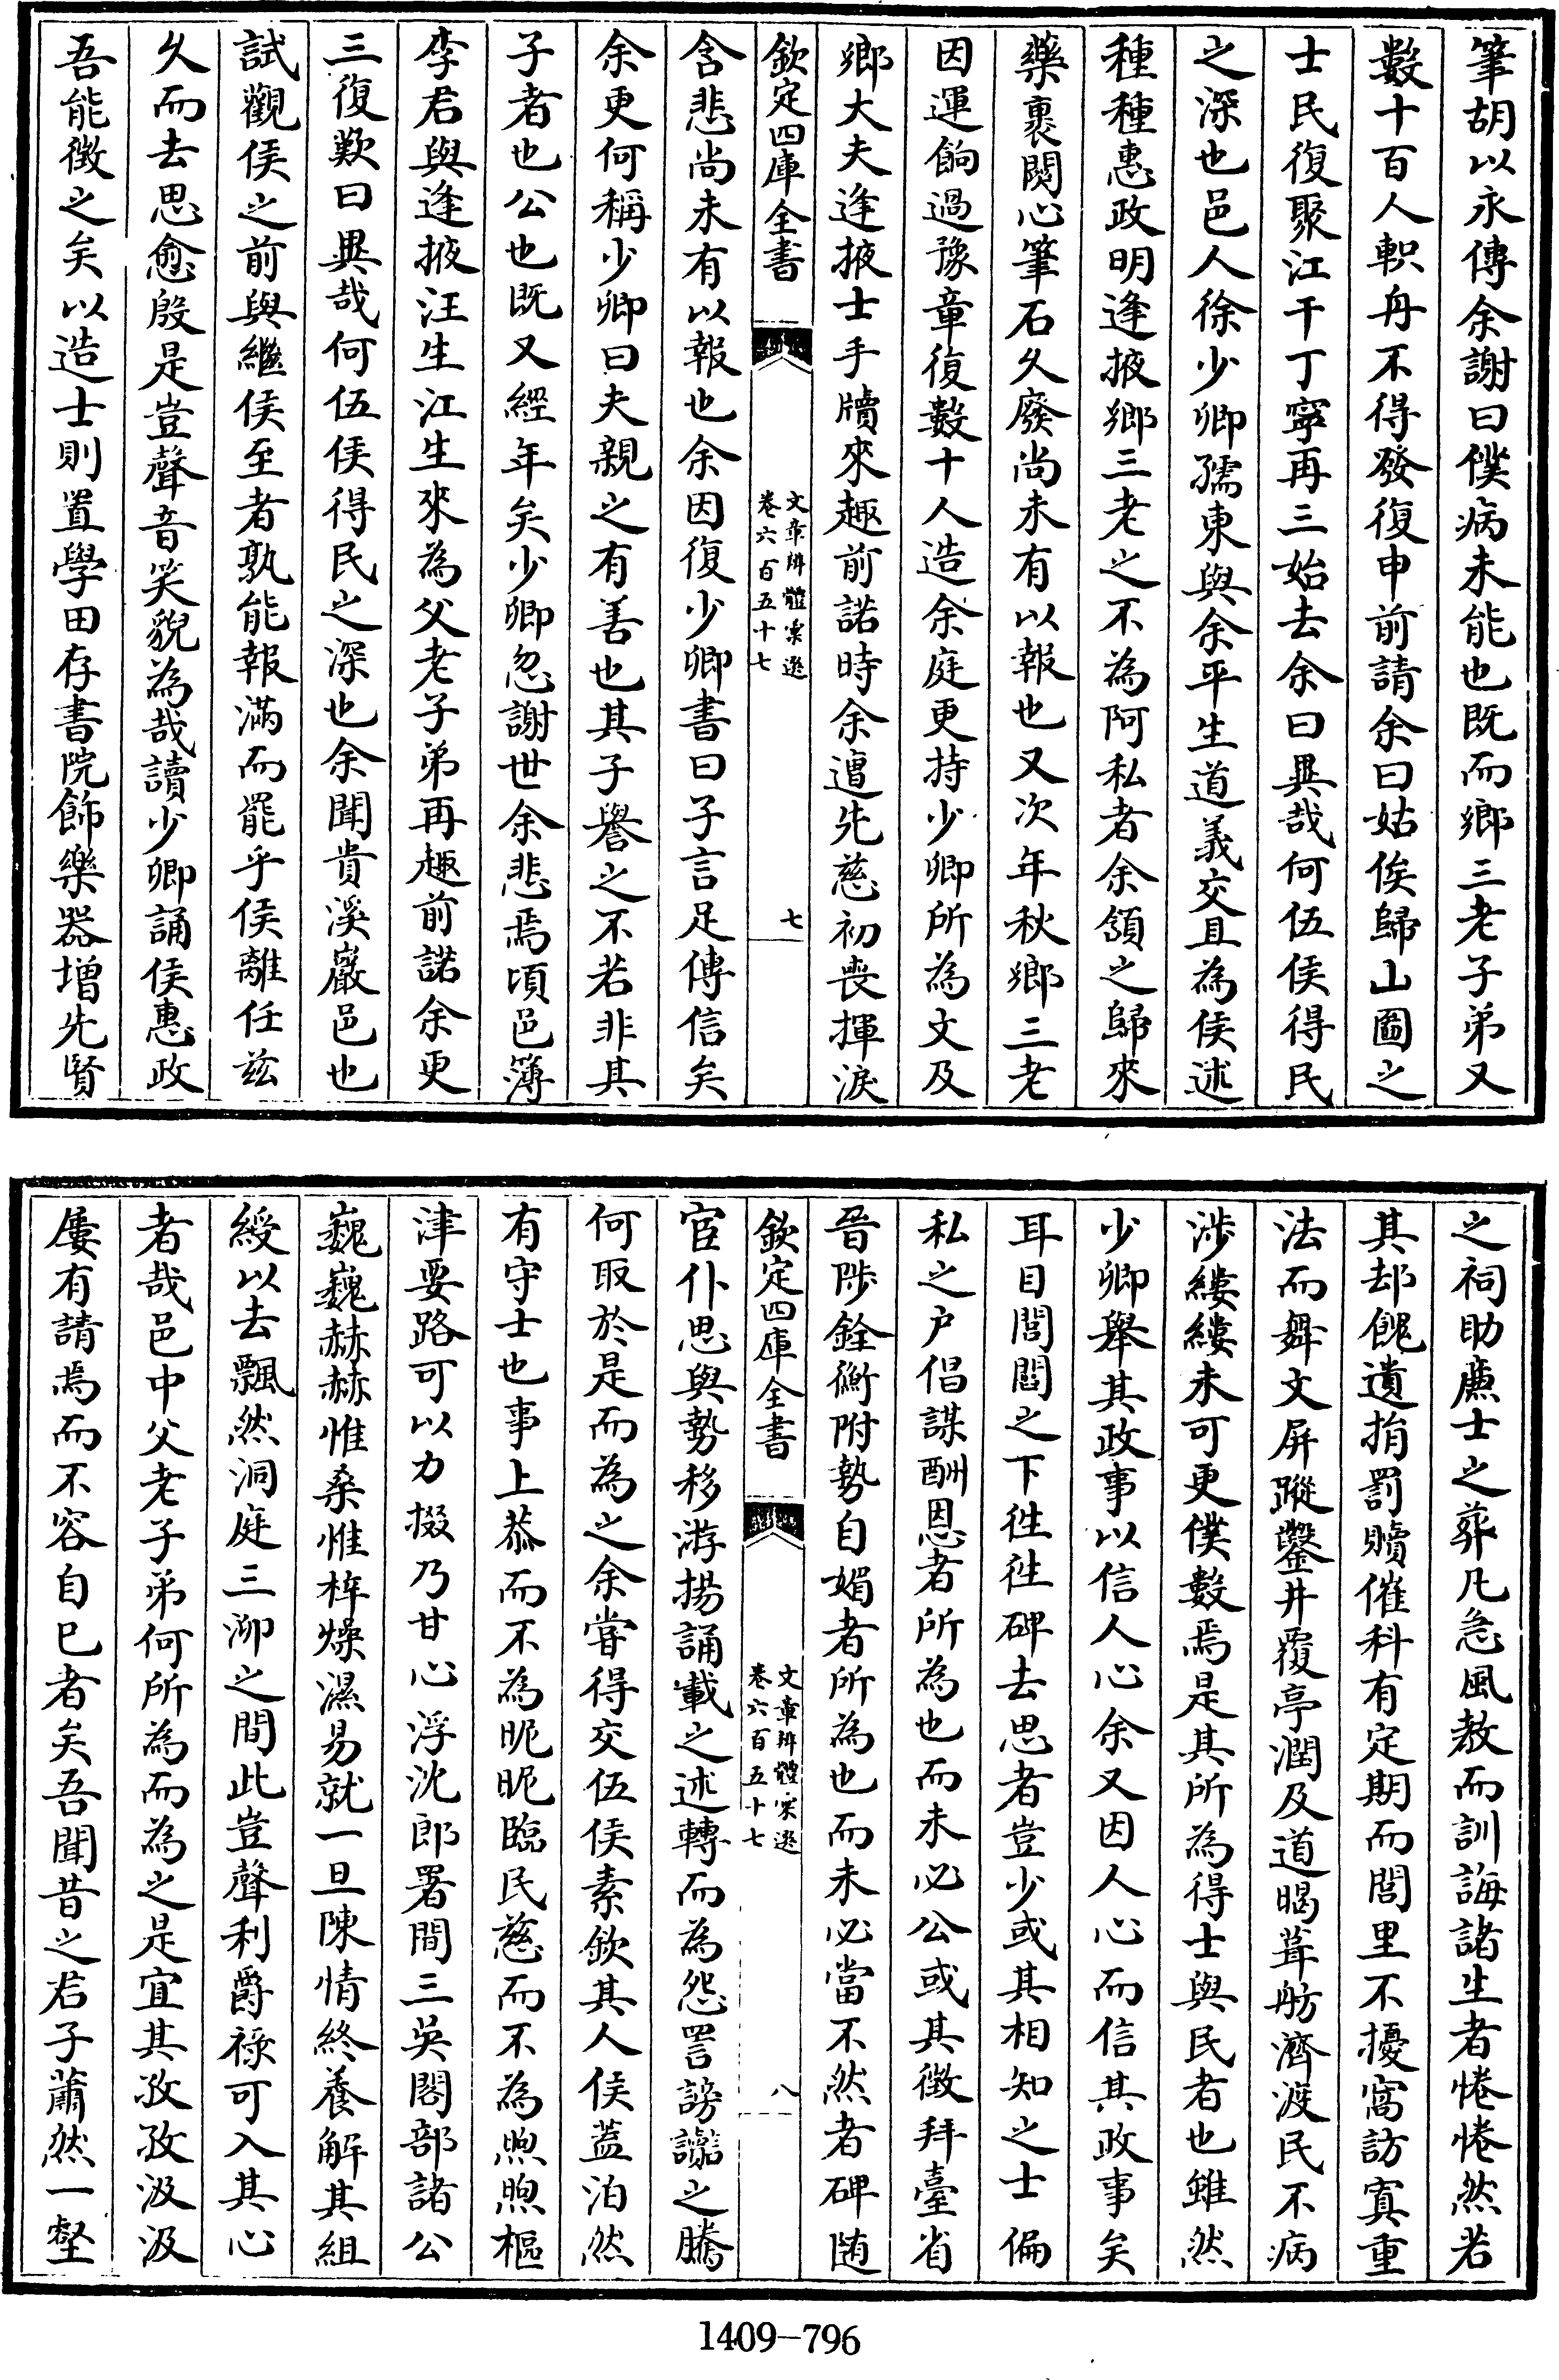 筆胡以永傳余謝曰僕病未能也既而鄉三老子弟又
數十百人軹舟不得發復申前請余曰姑俟歸山圖之
士民復聚江干丁寧再三始去余曰異哉何伍侯得民
之深也邑人徐少卿孺東與余平生道義交且為侯述
種種惠政明逢掖鄉三老之不為阿私者余頷之歸來
藥裹関心筆石久廢尚未有以報也又次年秋鄉三老
因運餉過豫章復數十人造余庭更持少卿所為文及
鄉大夫逢掖士手牘來趣前諾時余遭先慈初喪揮淚
欽定四庫全書
文章辨體彙選
卷六百五十七
七
含悲尚未有以報也余因復少卿書曰子言足傳信矣
余更何稱少卿曰夫親之有善也其子譽之不若非其
子者也公也既又經年矣少卿忽謝世余悲焉頃邑簿
李君與逢掖汪生江生來為父老子弟再趣前諾余更
三復歎曰異哉何伍侯得民之深也余聞貴溪巖邑也
試觀侯之前與繼侯至者孰能報滿而罷乎侯離任茲
久而去思愈殷是豈聲音笑貌為哉讀少卿誦侯惠政
吾能徴之矣以造士則置學田存書院飾樂器增先賢
之祠助廉士之葬凡急風教而訓誨諸生者惓惓然若
其却餽遺捐罰贖催科有定期而閭里不擾窩訪寘重
法而舞文屏蹤鑿井覆亭潤及道暍葺舫濟渡民不病
涉縷縷未可更僕數焉是其所為得士與民者也雖然
少卿舉其政事以信人心余又因人心而信其政事矣
耳目閭閻之下徃徃碑去思者豈少或其相知之士偏
私之户倡謀酬恩者所為也而未必公或其徴拜臺省
晉陟銓衡附勢自媚者所為也而未必當不然者碑随
欽定四庫全書
文章辨體彙選
卷六百五十七
八
宦仆思與勢移游揚誦載之述轉而為怨詈謗讟之騰
何取於是而為之余嘗得交伍侯素欽其人侯蓋泊然
有守士也事上恭而不為昵昵臨民慈而不為煦煦樞
津要路可以力掇乃甘心浮沈郎署間三吳閣部諸公
巍巍赫赫惟桑惟梓燥濕易就一旦陳情終養解其組
綬以去飄然洞庭三泖之間此豈聲利爵祿可入其心
者哉邑中父老子弟何所為而為之是宜其孜孜汲汲
屢有請焉而不容自已者矣吾聞昔之君子蕭然一壑
1409-796